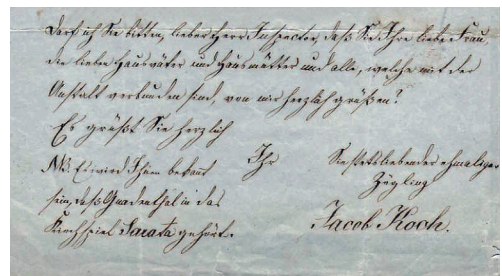 Darf ich Sie bitten, lieber Herr Inspector, daß Sie Ihre liebe Frau,
die lieben Hausväter und Hausmütter und alle, welche mit der
Anstalt verbunden sind, von mir herzlich grüßen?
Es grüßt Sie herzlich
Ihr Sie stets liebender ehmaliger
Zögling
Jacob Koch.
NB. Es wird Ihnen bekannt
sein, daß Gnadenthal in das
Kirchspiel Sarata gehört.